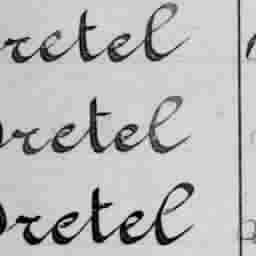 retel
retel
retel